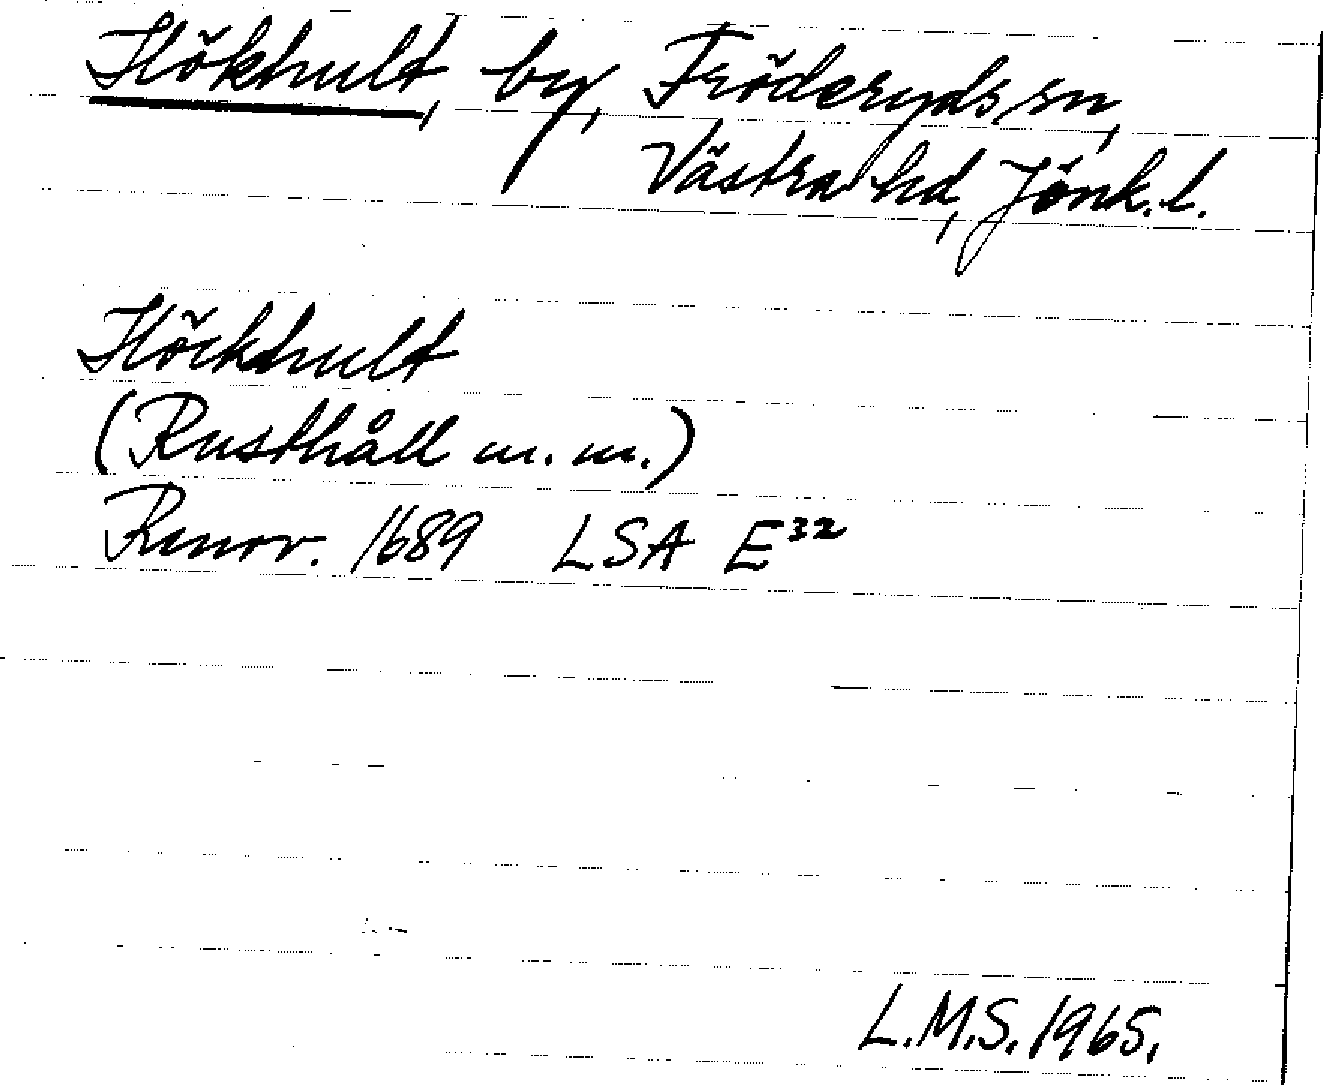 Hökhult, by, Fröderyds sn,
Västra hd, Jönk. l.
Höckhult
(Rusthåll m. m.)
Renov. 1689 LSA E32
L.M.S. 1965.